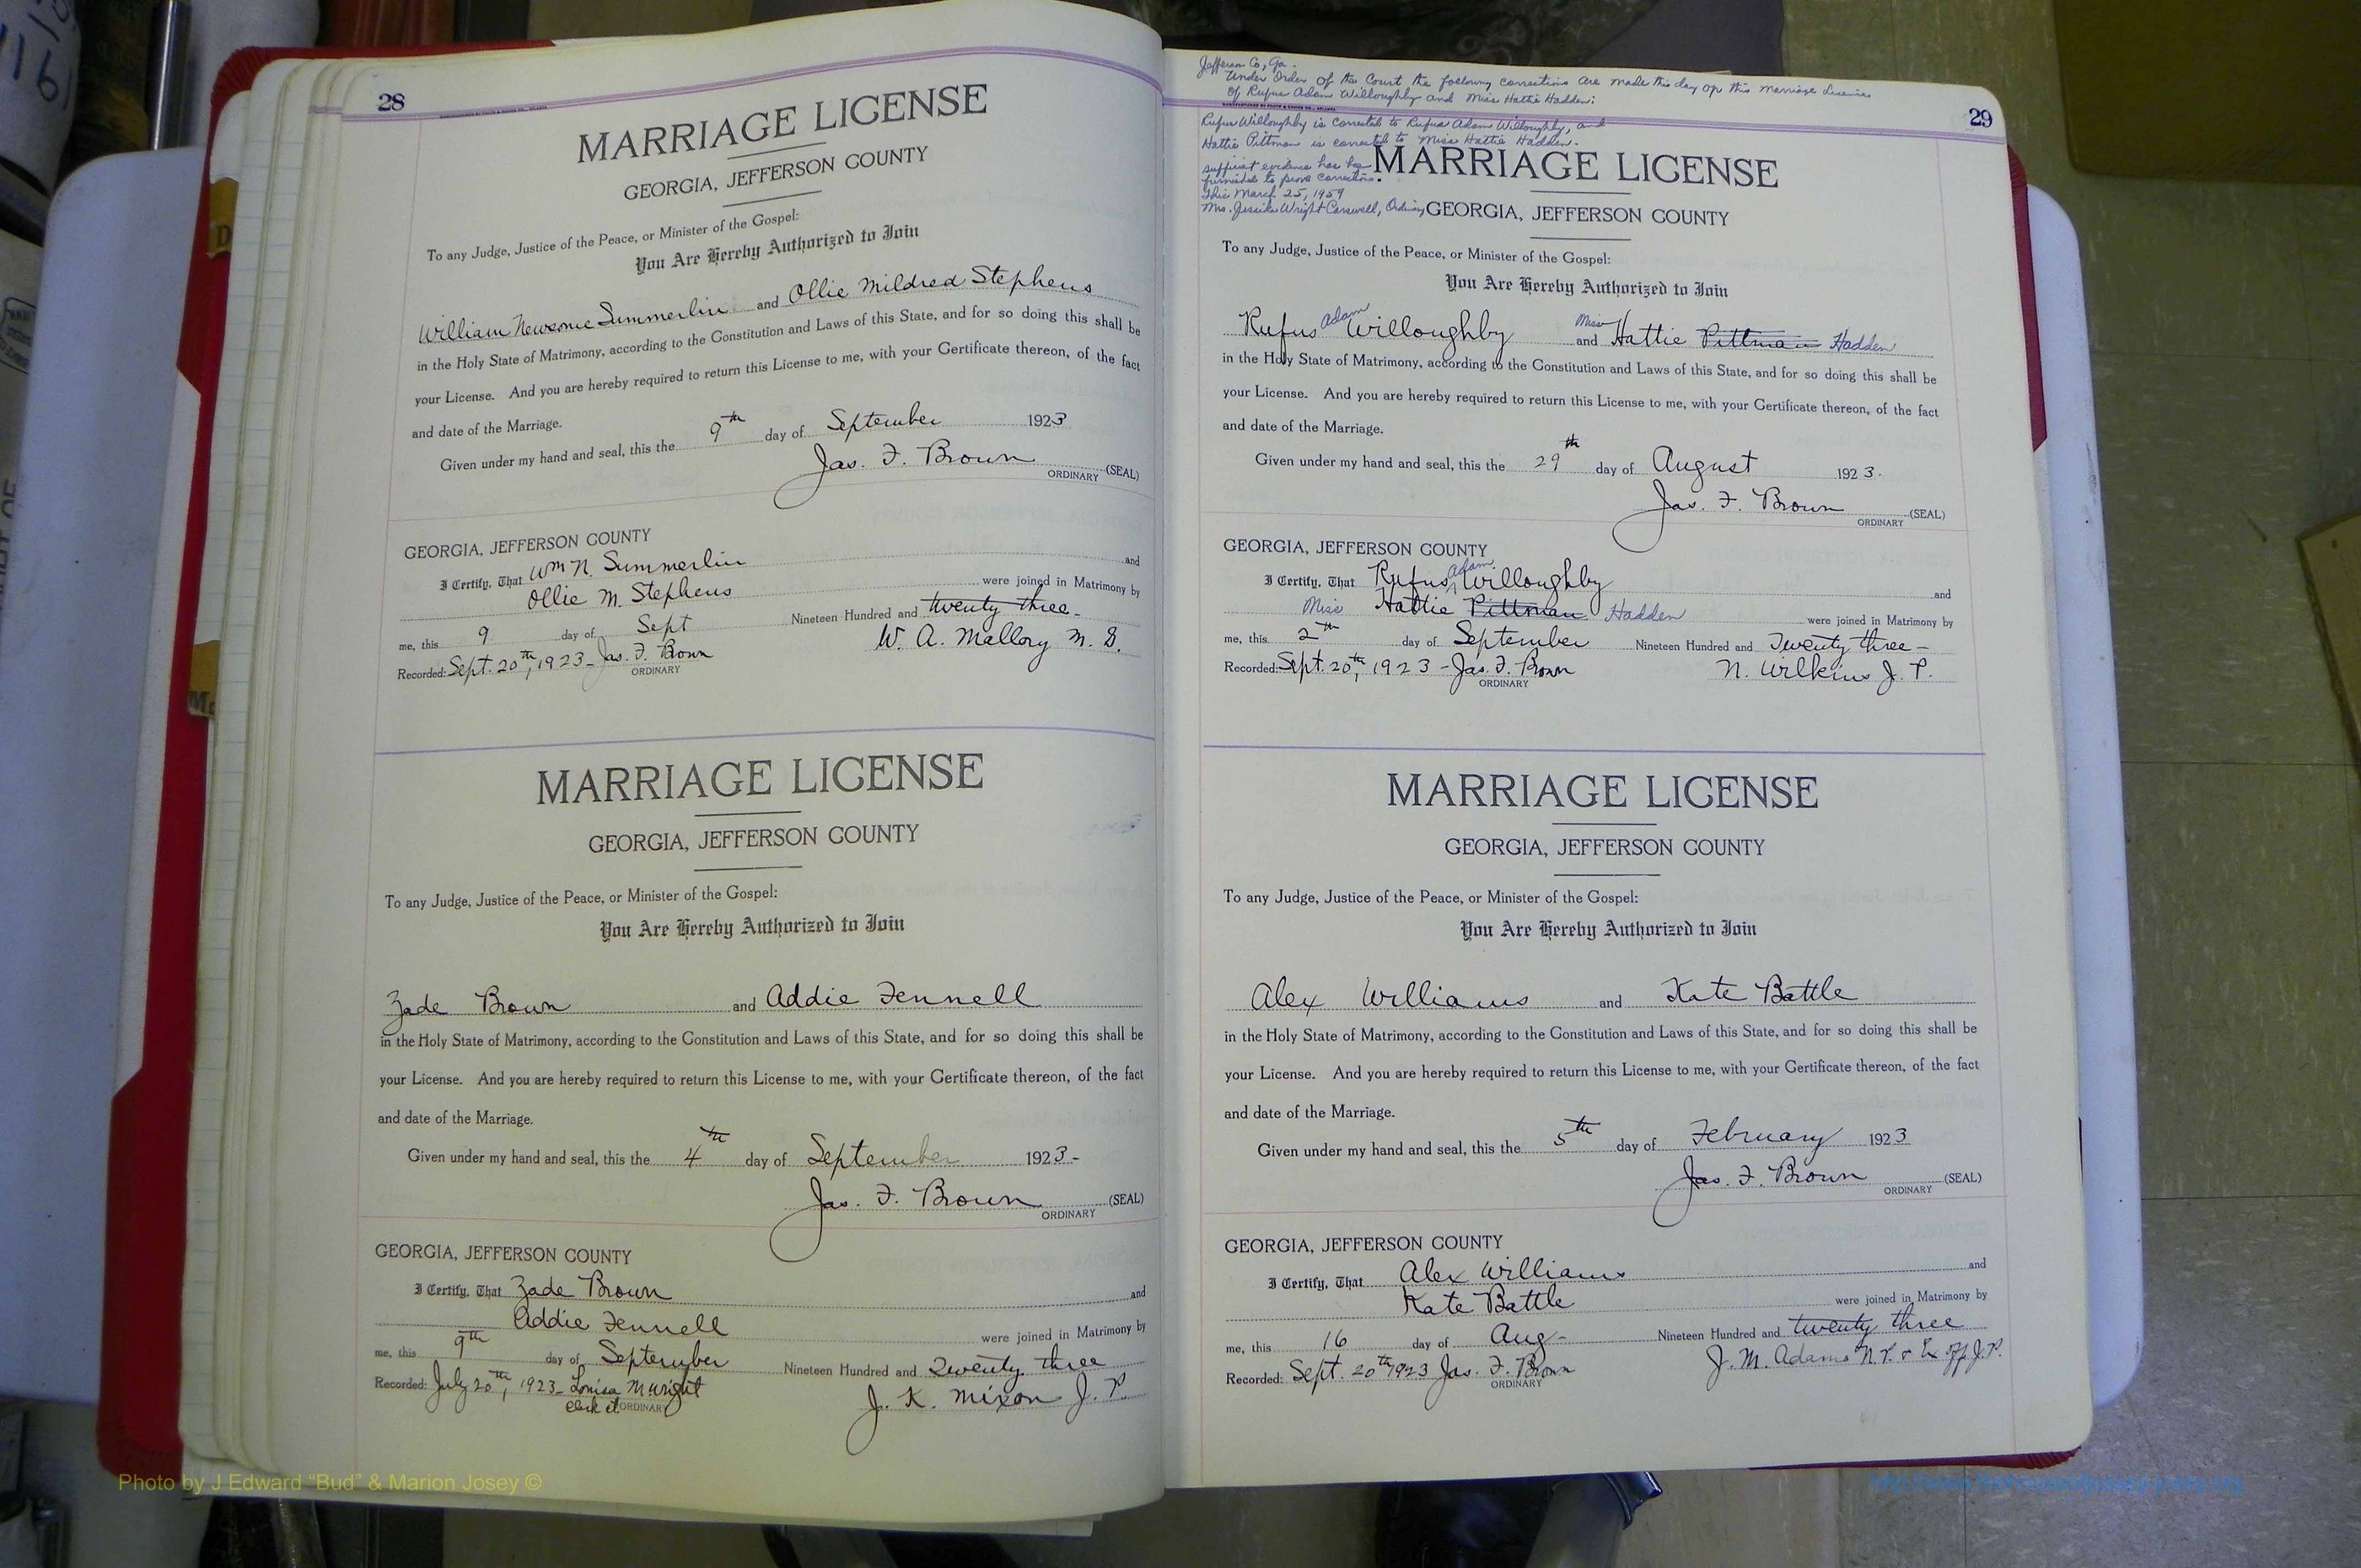 28
MARRIAGE LICENSE
GEORGIA, JEFFERSON COUNTY
To any Judge, Justice of the Peace, or Minister of the Gospel:
You Are Hereby Authorized to Join
William Newsome Summerlin and Ollie Mildred Stephens
in the Holy State of Matrimony, according to the Constitution and Laws of this State, and for so doing this shall be
your License. And you are hereby required to return this License to me, with your Certificate thereon, of the fact
and date of the Marriage.
Given under my hand and seal, this the 9th day of September 1923
Jas. F. Brown (SEAL)
ORDINARY
GEORGIA, JEFFERSON COUNTY
I Certify, That Wm N. Summerlin and
Ollie M. Stephens were joined in Matrimony by
me, this 9 day of Sept Nineteen Hundred and twenty three
Recorded: Sept. 20th, 1923 - Jas. F. Brown W. A. Mallory M. G.
ORDINARY
MARRIAGE LICENSE
GEORGIA, JEFFERSON COUNTY
To any Judge, Justice of the Peace, or Minister of the Gospel:
You Are Hereby Authorized to Join
Zade Brown and Addie Fennell
in the Holy State of Matrimony, according to the Constitution and Laws of this State, and for so doing this shall be
your License. And you are hereby required to return this License to me, with your Certificate thereon, of the fact
and date of the Marriage.
Given under my hand and seal, this the 4th day of September 1923-
Jas. F. Brown (SEAL)
ORDINARY
GEORGIA, JEFFERSON COUNTY
I Certify, That Zade Brown and
Addie Fennell were joined in Matrimony by
me, this 9th day of September Nineteen Hundred and Twenty three
Recorded: July 20th, 1923 - Louisa M Wright J. K. Mixon J. P.
Clerk ORDINARY
Jefferson Co, Ga.
Under Order of the Court the following corrections are made this day on this marriage License
of Rufus Adam Willoughby and Miss Hattie Hadden:
29
Rufus Willoughby is corrected to Rufus Adam Willoughby, and
Hattie Pittman is corrected to Miss Hattie Hadden.
sufficient evidence has been
furnished to prove correction.
This March 25, 1959
Mrs. Jessika Wright Carswell, Ordinary
MARRIAGE LICENSE
GEORGIA, JEFFERSON COUNTY
To any Judge, Justice of the Peace, or Minister of the Gospel:
You Are Hereby Authorized to Join
Rufus Adam Willoughby and Miss Hattie Pittman Hadden
in the Holy State of Matrimony, according to the Constitution and Laws of this State, and for so doing this shall be
your License. And you are hereby required to return this License to me, with your Certificate thereon, of the fact
and date of the Marriage.
Given under my hand and seal, this the 29th day of August 1923.
Jas. F. Brown (SEAL)
ORDINARY
GEORGIA, JEFFERSON COUNTY
I Certify, That Rufus Adam Willoughby and
Miss Hattie Pittman Hadden were joined in Matrimony by
me, this 2th day of September Nineteen Hundred and Twenty three -
Recorded: Sept. 20th, 1923 - Jas. F. Brown N. Wilkins J. P.
ORDINARY
MARRIAGE LICENSE
GEORGIA, JEFFERSON COUNTY
To any Judge, Justice of the Peace, or Minister of the Gospel:
You Are Hereby Authorized to Join
Alex Williams and Kate Battle
in the Holy State of Matrimony, according to the Constitution and Laws of this State, and for so doing this shall be
your License. And you are hereby required to return this License to me, with your Certificate thereon, of the fact
and date of the Marriage.
Given under my hand and seal, this the 5th day of February 1923
Jas. F. Brown (SEAL)
ORDINARY
GEORGIA, JEFFERSON COUNTY
I Certify, That Alex Williams and
Kate Battle were joined in Matrimony by
me, this 16 day of Aug - Nineteen Hundred and twenty three
Recorded: Sept. 20th 1923 Jas. F. Brown J. M. Adams N. P. & Ex off J. P.
ORDINARY
Photo by J Edward “Bud” & Marion Josey ©